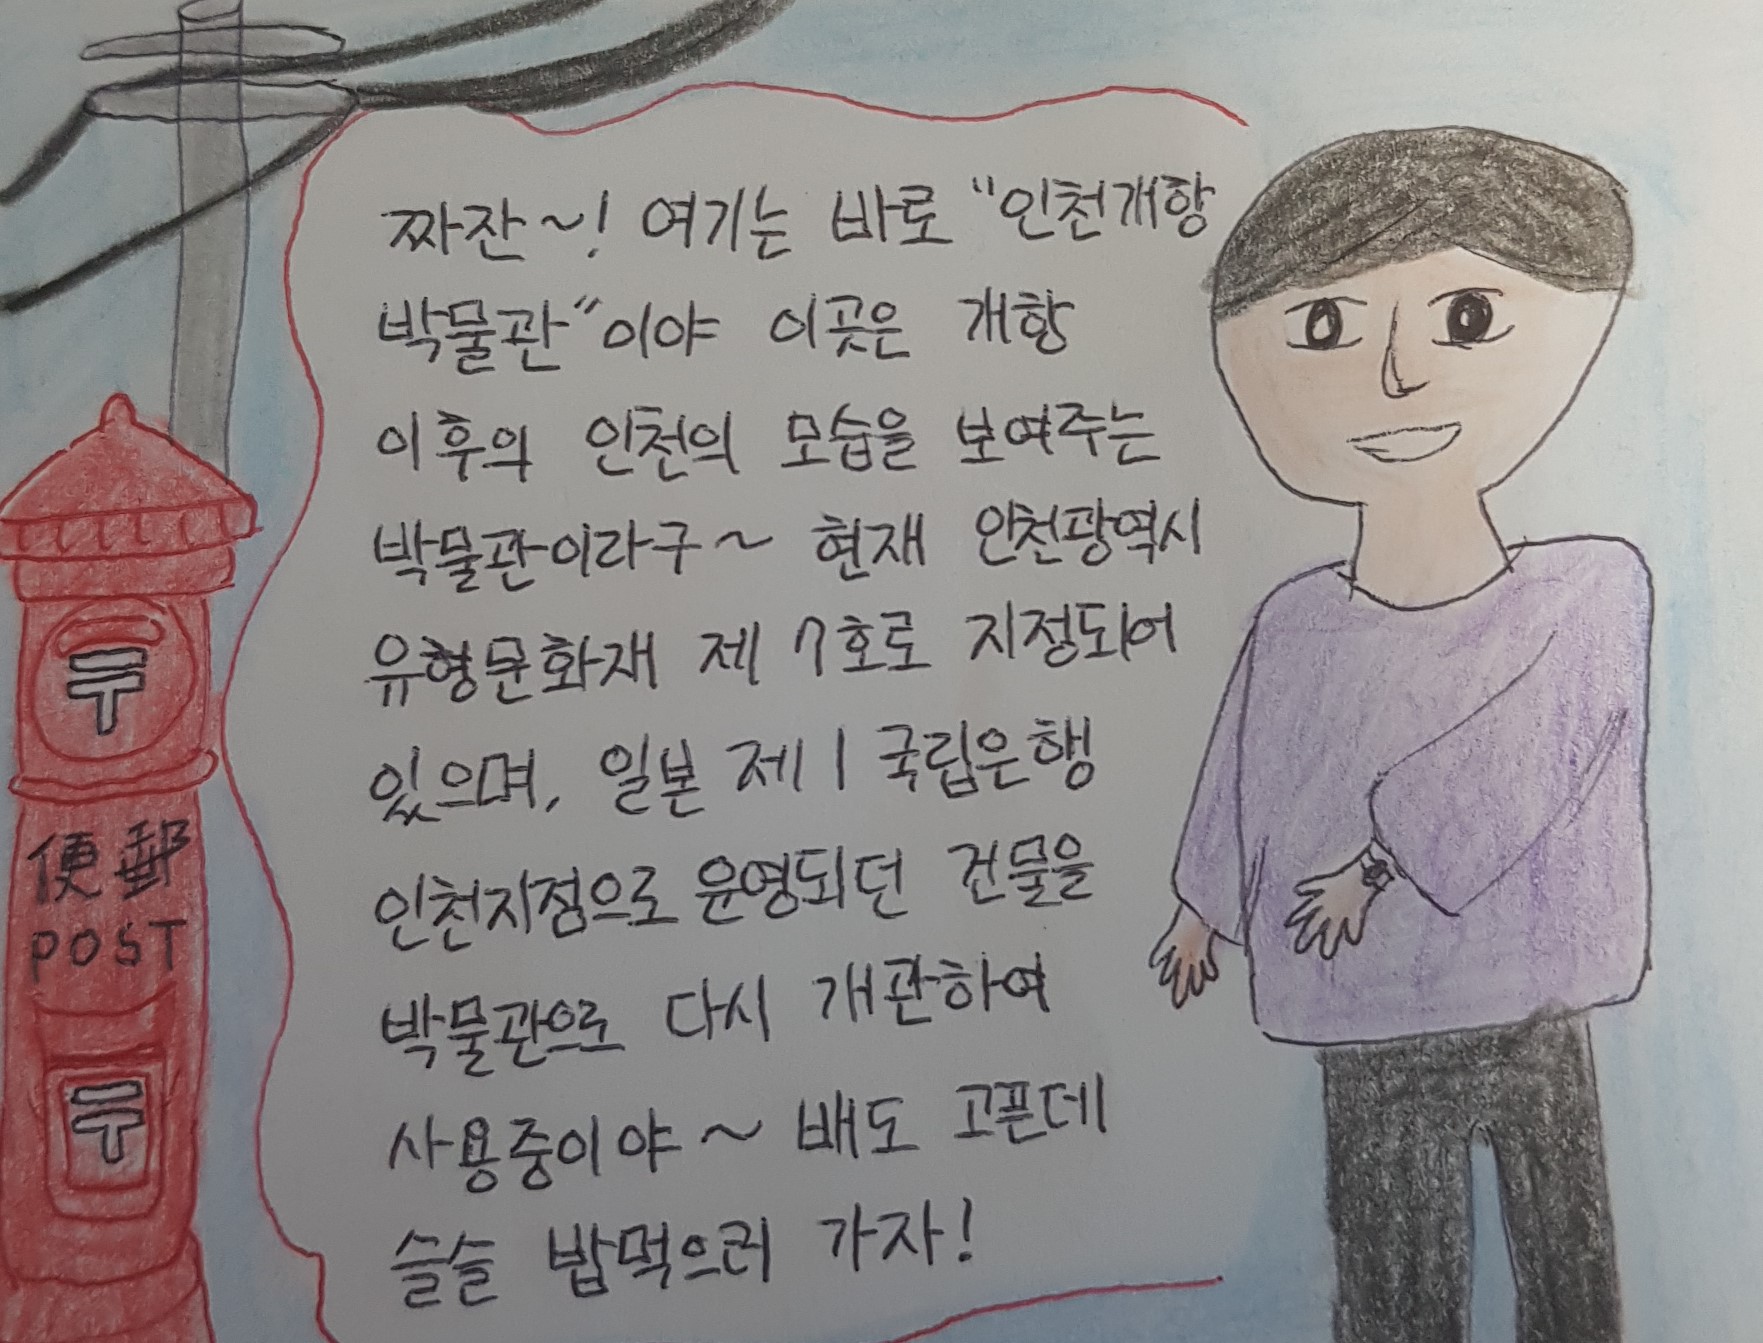 짜잔~! 여기는 바로 "인천개항
박물관"이야 이곳은 개항
이후의 인천의 모습을 보여주는
박물관이라구~ 현재 인천광역시
유형문화재 제 7호로 지정되어
있으며, 일본 제 1 국립은행
인천지점으로 운영되던 건물을
박물관으로 다시 개관하여
사용중이야~ 배도 고픈데
슬슬 밥먹으러 가자!
〒
便郵
POST
〒